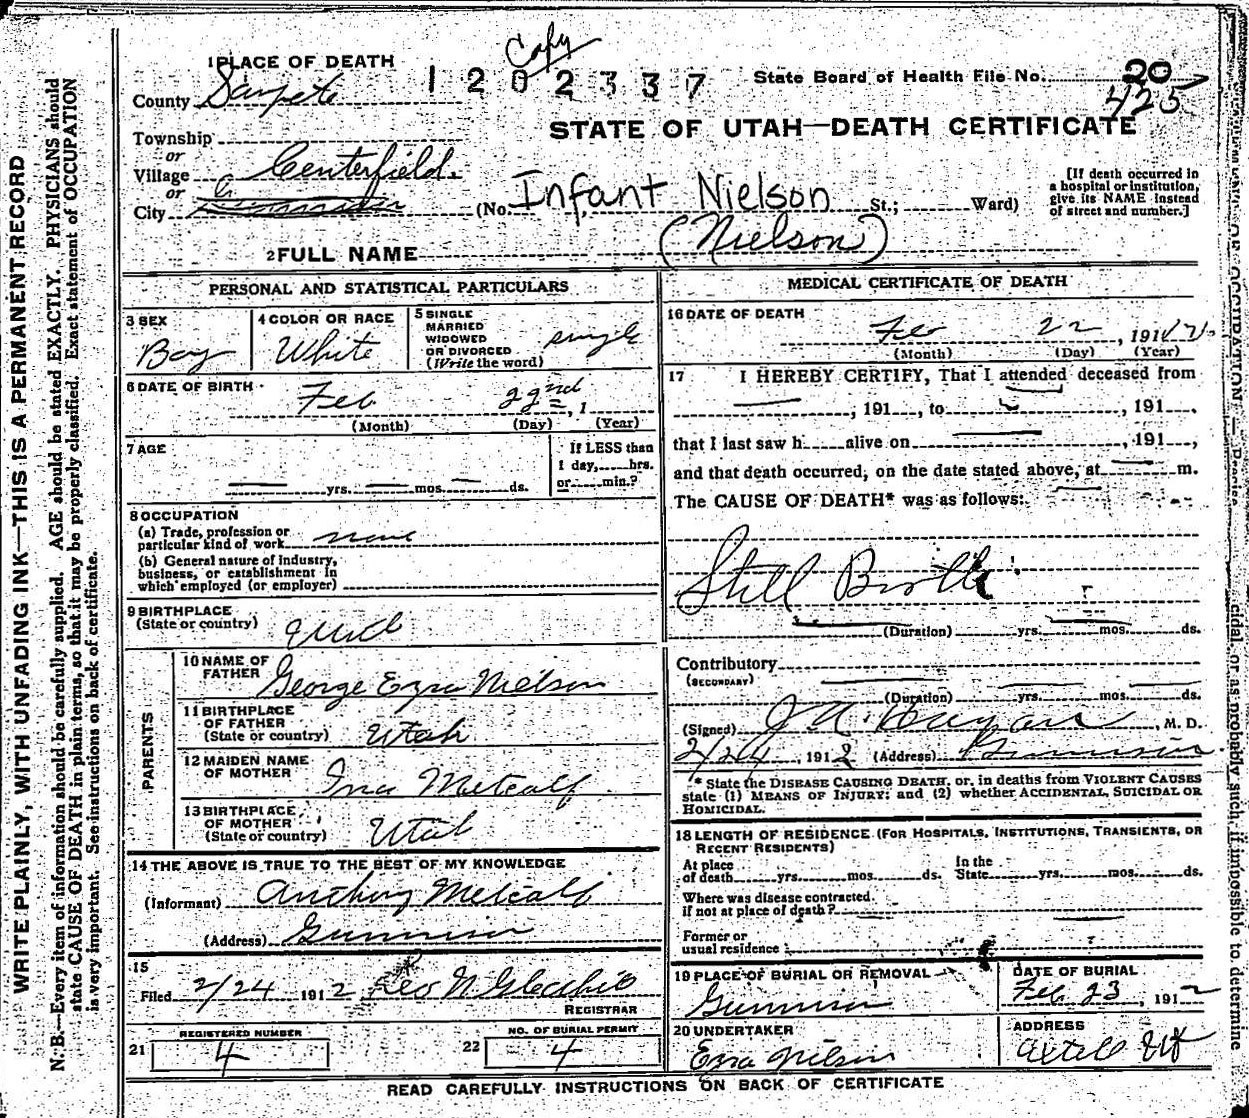 Copy
1 PLACE OF DEATH
1202337
State Board of Health File No. 20
425
County Sanpete
STATE OF UTAH—DEATH CERTIFICATE
Township
or
Village Centerfield.
or
City
(No. Infant Nielson St.; Ward)
[If death occurred in
a hospital or institution,
give its NAME instead
of street and number.]
2 FULL NAME (Nielson)
PERSONAL AND STATISTICAL PARTICULARS
3 SEX
Boy
4 COLOR OR RACE
White
5 SINGLE
MARRIED
WIDOWED
OR DIVORCED
(Write the word)
single
6 DATE OF BIRTH
Feb 22nd, 1
(Month) (Day) (Year)
7 AGE
yrs. mos. ds.
If LESS than
1 day, hrs.
or min.?
8 OCCUPATION
(a) Trade, profession or
particular kind of work none
(b) General nature of industry,
business, or establishment in
which employed (or employer)
9 BIRTHPLACE
(State or country)
PARENTS
10 NAME OF
FATHER George Ezra Nielson
11 BIRTHPLACE
OF FATHER
(State or country) Utah
12 MAIDEN NAME
OF MOTHER Ina Metcalf
13 BIRTHPLACE
OF MOTHER
(State or country) Utah
14 THE ABOVE IS TRUE TO THE BEST OF MY KNOWLEDGE
(Informant) Anthony Metcalf
(Address) Gunnison
15
Filed 2/24 1912
REGISTRAR
REGISTERED NUMBER
21 4
NO. OF BURIAL PERMIT
22 4
MEDICAL CERTIFICATE OF DEATH
16 DATE OF DEATH
Feb 22, 191
(Month) (Day) (Year)
17 I HEREBY CERTIFY, That I attended deceased from
, 191 , to , 191 .
that I last saw h alive on , 191 ,
and that death occurred, on the date stated above, at m.
The CAUSE OF DEATH* was as follows:
Still Birth
(Duration) yrs. mos. ds.
Contributory
(SECONDARY)
(Duration) yrs. mos. ds.
(Signed) M. D.
2/24, 1912 (Address) Gunnison
* State the DISEASE CAUSING DEATH, or, in deaths from VIOLENT CAUSES
state (1) MEANS OF INJURY; and (2) whether ACCIDENTAL, SUICIDAL OR
HOMICIDAL.
18 LENGTH OF RESIDENCE (FOR HOSPITALS, INSTITUTIONS, TRANSIENTS, OR
RECENT RESIDENTS)
At place
of death yrs. mos. ds.
In the
State yrs. mos. ds.
Where was disease contracted.
if not at place of death?
Former or
usual residence
19 PLACE OF BURIAL OR REMOVAL
Gunnison
DATE OF BURIAL
Feb 23, 1912
20 UNDERTAKER
Ezra Nilson
ADDRESS
Axtell Ut
READ CAREFULLY INSTRUCTIONS ON BACK OF CERTIFICATE
WRITE PLAINLY, WITH UNFADING INK—THIS IS A PERMANENT RECORD
N. B.—Every item of information should be carefully supplied. AGE should be stated EXACTLY. PHYSICIANS should
state CAUSE OF DEATH in plain terms, so that it may be properly classified. Exact statement of OCCUPATION
is very important. See instructions on back of certificate.
cidal, or as probably such, if impossible to determine